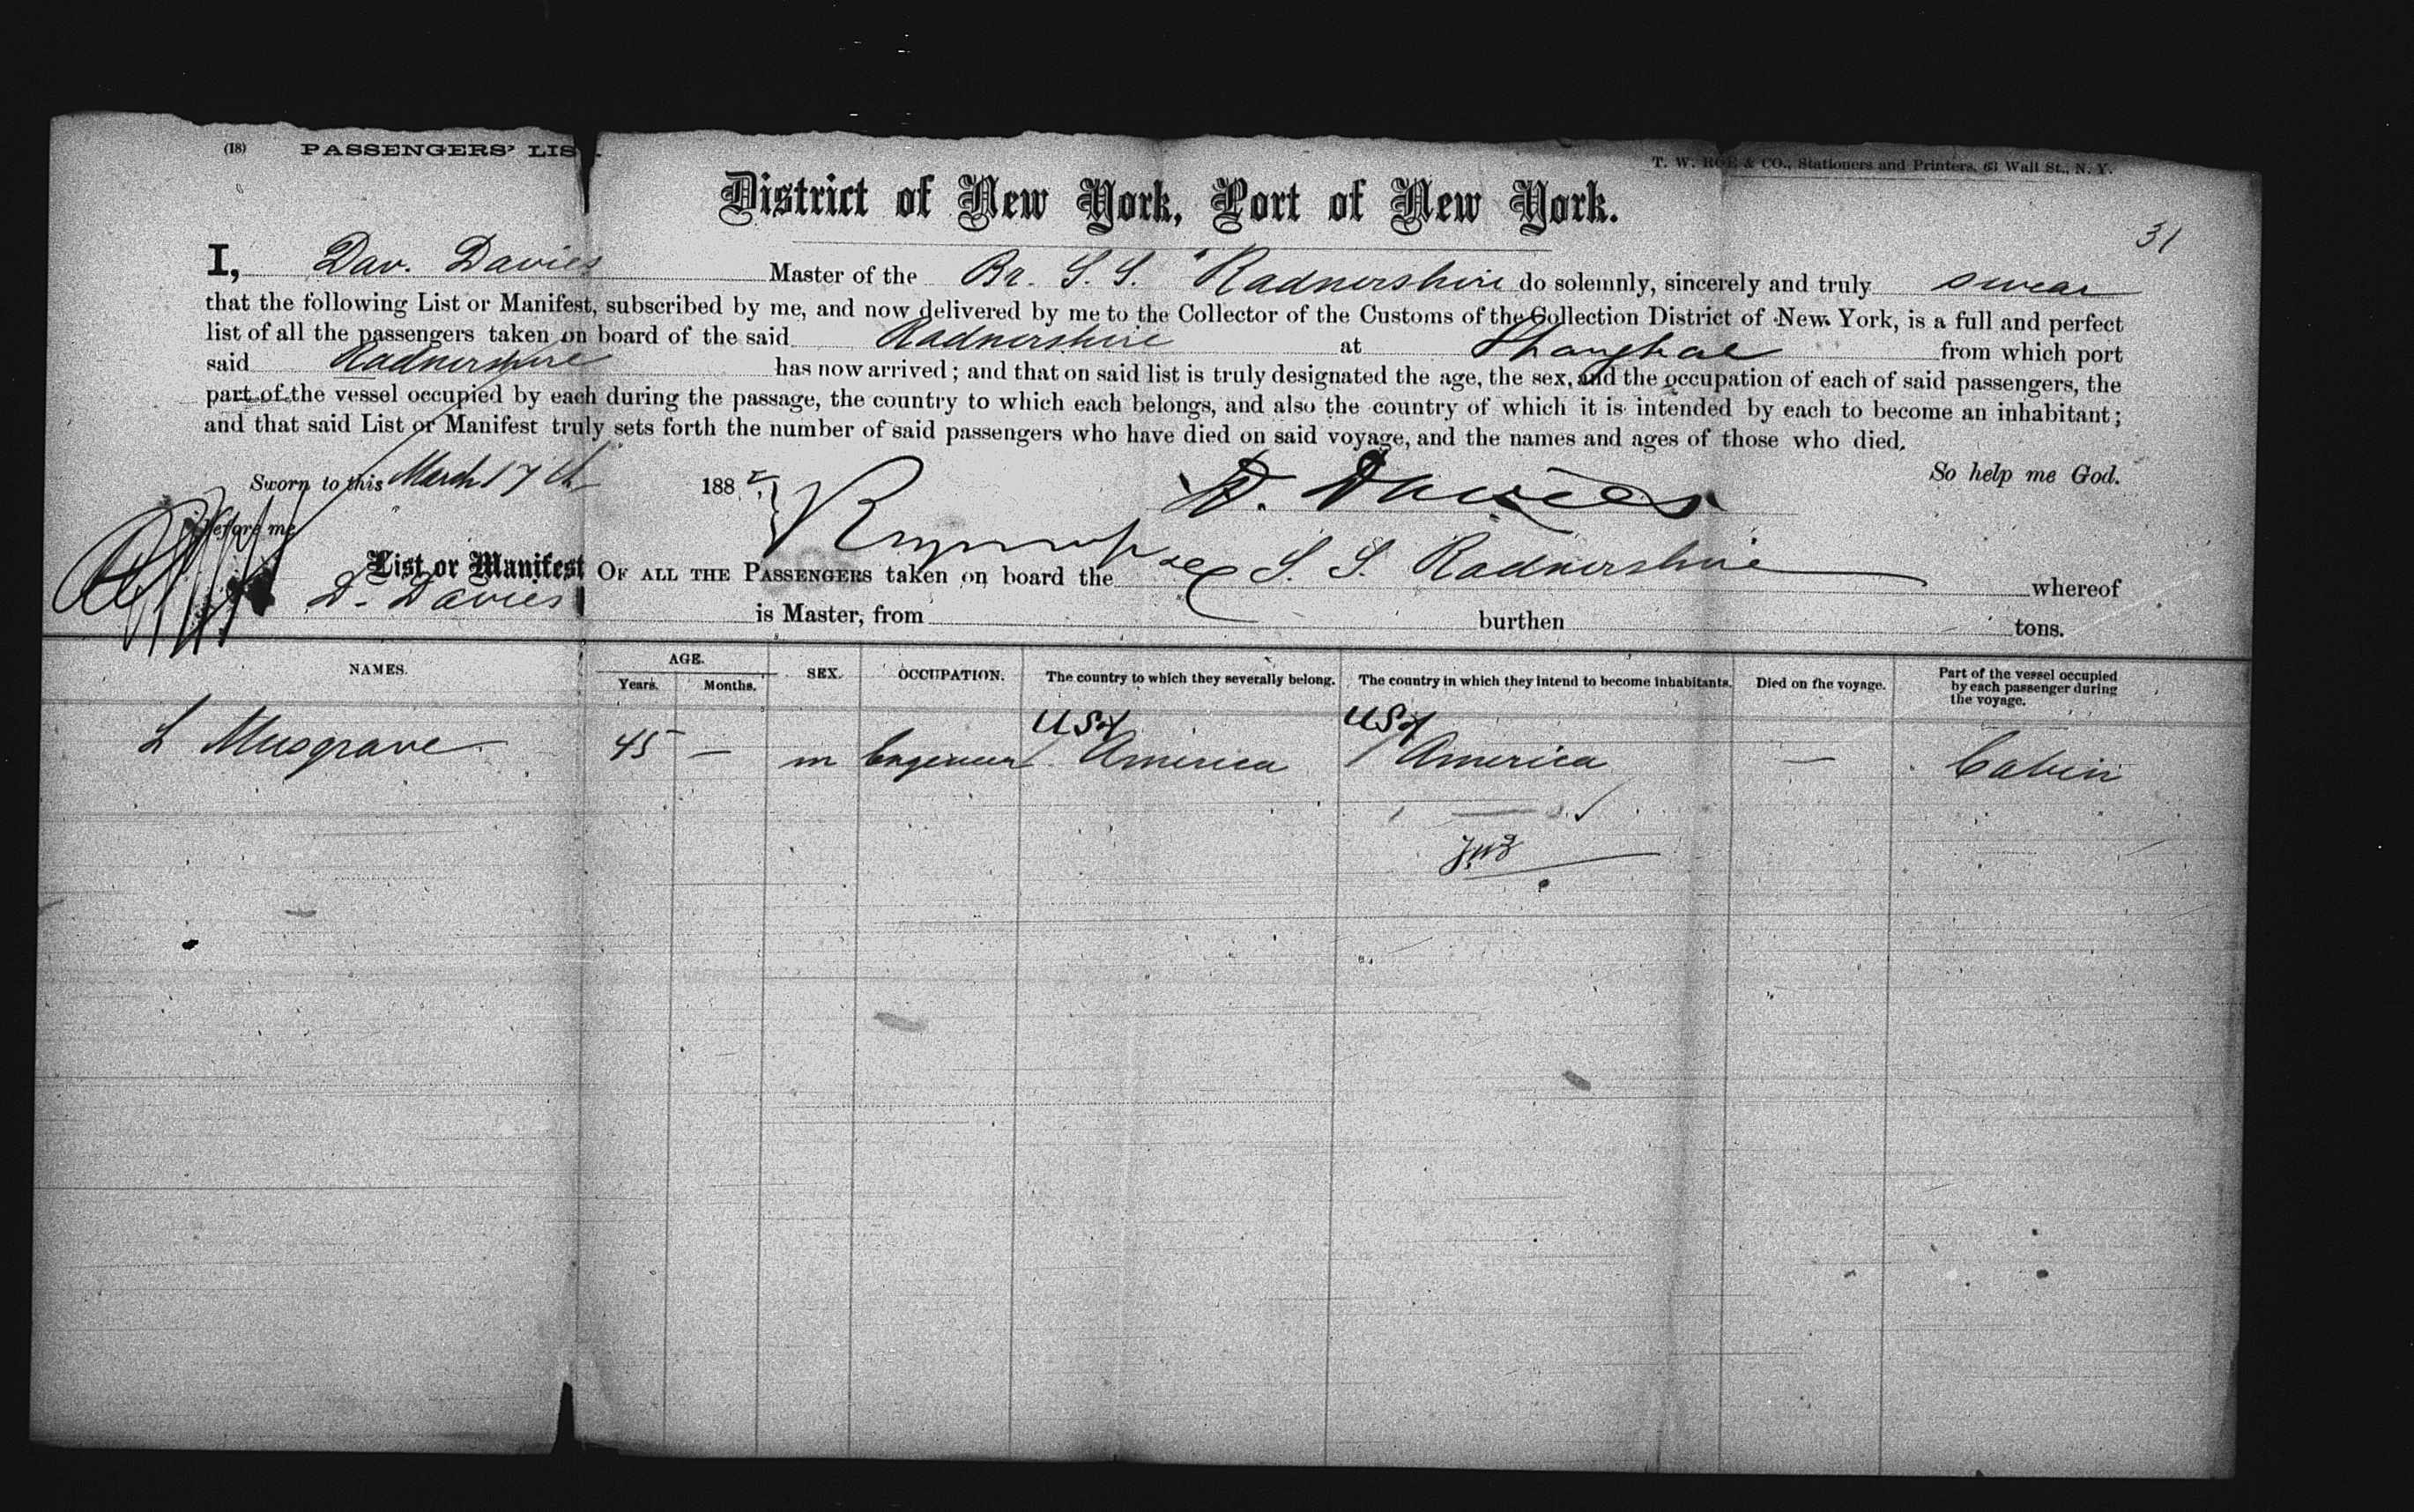 (18) PASSENGERS' LIS
T. W. ROE & CO., Stationers and Printers, 63 Wall St., N. Y.
District of New York, Port of New York.
31
I, Dav. Davies Master of the Br. S. S. "Radnorshire do solemnly, sincerely and truly swear
that the following List or Manifest, subscribed by me, and now delivered by me to the Collector of the Customs of the Collection District of New York, is a full and perfect
list of all the passengers taken on board of the said Radnorshire at Shanghae from which port
said Radnorshire has now arrived; and that on said list is truly designated the age, the sex, and the occupation of each of said passengers, the
part of the vessel occupied by each during the passage, the country to which each belongs, and also the country of which it is intended by each to become an inhabitant;
and that said List or Manifest truly sets forth the number of said passengers who have died on said voyage, and the names and ages of those who died.
So help me God.
Sworn to this March 17th 188
D. Davies
Before me
List or Manifest OF ALL THE PASSENGERS taken on board the S. S. Radnorshire whereof
D. Davies is Master, from burthen tons.
NAMES. AGE. Years. Months. SEX. OCCUPATION. The country to which they severally belong. The country in which they intend to become inhabitants. Died on the voyage. Part of the vessel occupied by each passenger during the voyage.
USA USA
L Musgrave 45 — m Engineer America America — Cabin